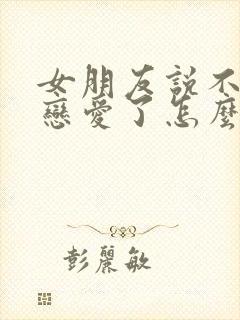 女朋友説不
戀愛了怎麼
彭麗敏